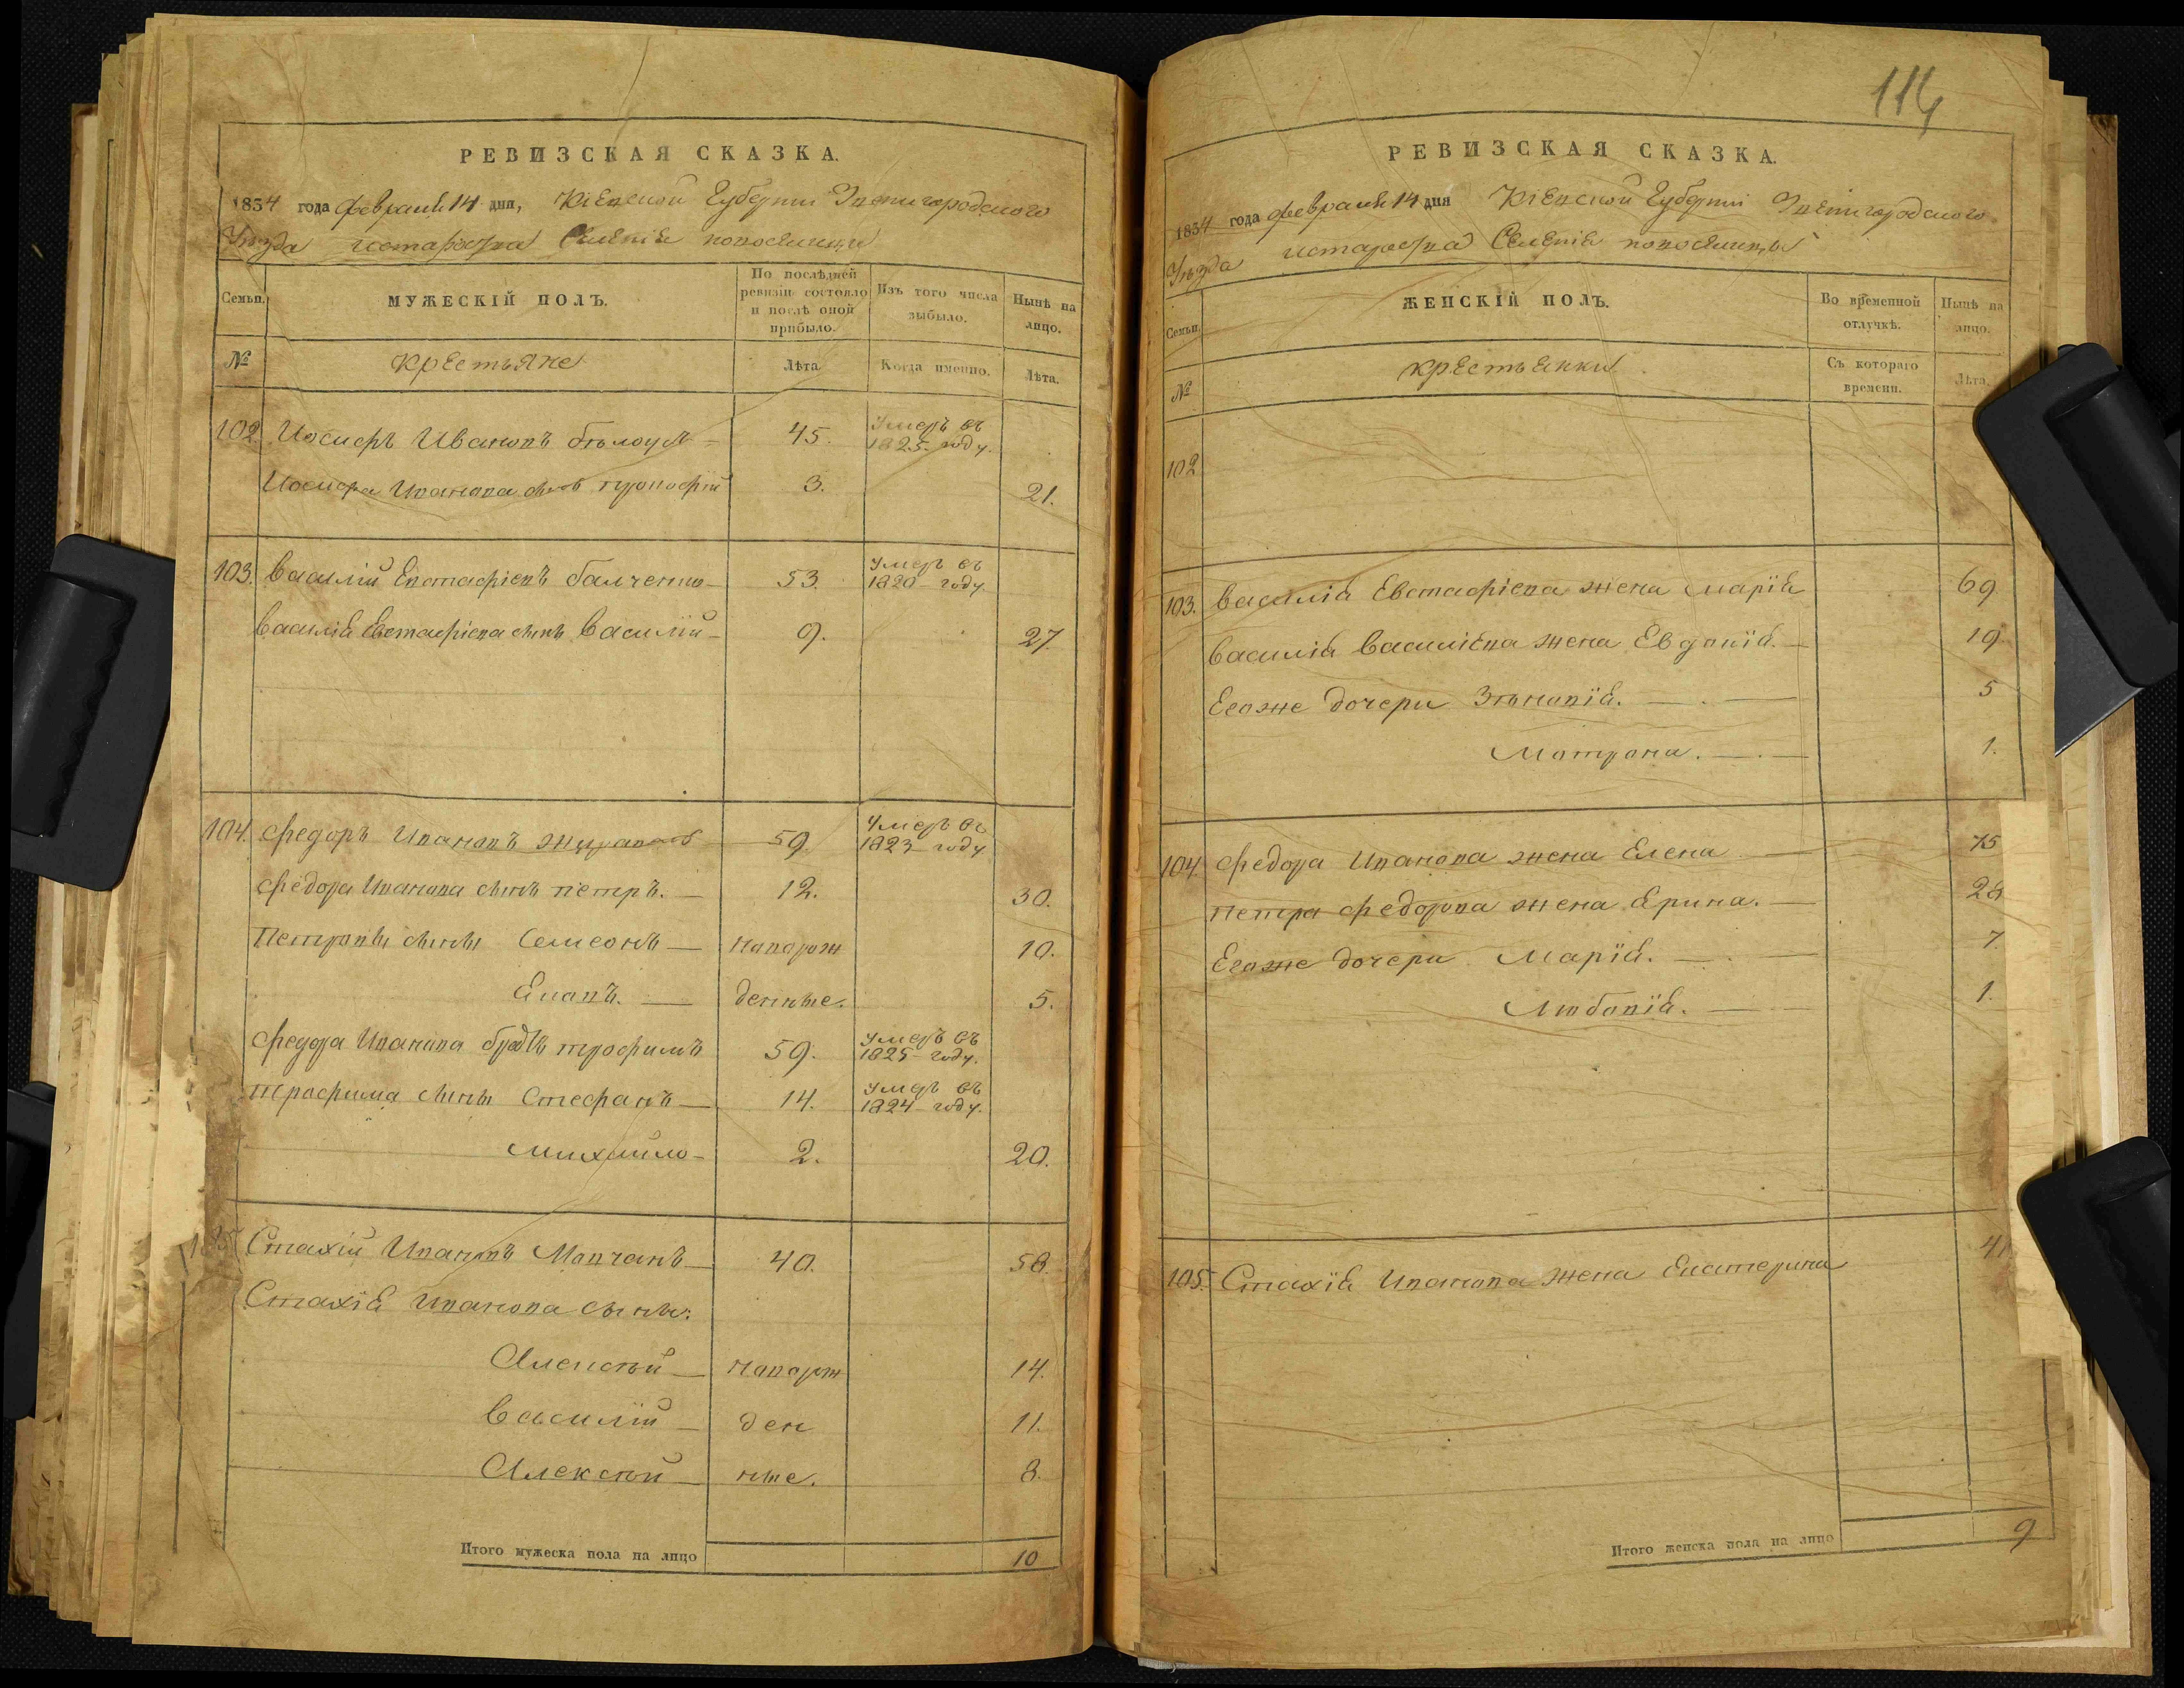 РЕВИЗСКАЯ СКАЗКА.
1834 года февраля 14 дня, Кіевской Губерніи Звенигородского
Уѣзда Селенія
Семьи.
МУЖЕСКІЙ ПОЛЪ.
По послѣдней ревизіи состояло и послѣ оной прибыло.
Изъ того числа выбыло.
Нынѣ на лицо.
№
крестьяне
Лѣта
Когда именно.
Лѣта.
102. Иосифъ Ивановъ бѣлоусъ 45. Умеръ въ 1825 году.
Иосифа Иванова сынъ прокофій 3. 21.
103. Василій Евстафіевъ 53. Умеръ въ 1820 году
Василія Евстафіева сынъ Василій 9. 27.
104. Федоръ Ивановъ 59. Умеръ въ 1823 году
Федора Иванова сынъ петръ. 12. 30.
Петровы сыны Семеонъ новорож 10.
Яковъ. денные. 5.
Федора Иванова братъ трофимъ 59. Умеръ въ 1825 году.
Трофима сыны Стефанъ 14. Умеръ въ 1824 году.
Михайло 2. 20.
105 Стахій Ивановъ Мовчанъ 40. 58.
Стахія Иванова сыны:
Алексѣй новорож 14.
Василій ден 11.
Алексѣй ные. 8.
Итого мужеска пола на лицо 10
114
РЕВИЗСКАЯ СКАЗКА.
1834 года февраля 14 дня Кіевской Губерніи Звенигородского
Уѣзда Селенія
Семьи.
ЖЕНСКІЙ ПОЛЪ.
Во временной отлучкѣ.
Нынѣ на лицо.
№
крестьянки
Съ котораго времени.
Лѣта.
102
103. Василія Евстафіева жена Марія 69
Василія Василіева жена Евдокія. 19
Егоже дочери Зѣновія. 5
Мотрона. 1.
104. Федора Иванова жена Елена 75
Петра Федорова жена Ярина. 28
Егоже дочери Марія. 7.
Любовія. 1.
105. Стахія Иванова жена Екатерина 41
Итого женска пола на лицо 9